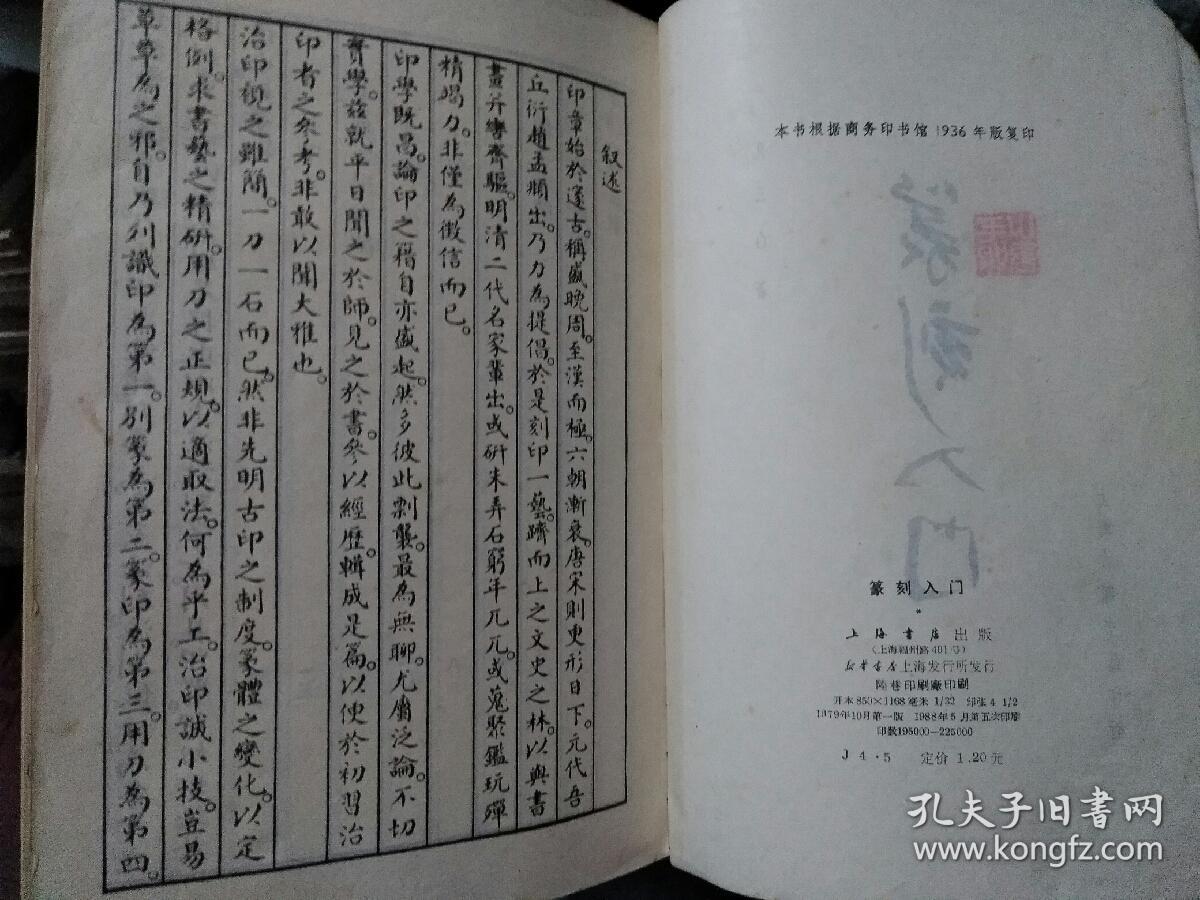 叙述
印章始於邃古。稱盛晚周。至漢而極。六朝漸衰。唐宋則更形日下。元代吾
丘衍趙孟頫出。乃力為提倡。於是刻印一藝。躋而上之文史之林。以與書
畫并轡齊驅。明清二代名家輩出。或研朱弄石窮年兀兀。或蒐聚鑑玩殫
精竭力。非僅為徵信而已。
印學既昌。論印之籍自亦盛起。然多彼此剽襲。最為無聊。尤屬泛論。不切
實學。茲就平日聞之於師。見之於書。參以經歷。輯成是篇。以便於初習治
印者之參考。非敢以聞大雅也。
治印視之雖簡。一刀一石而已。然非先明古印之制度。篆體之變化。以定
格例。求書藝之精研。用刀之正規。以適取法。何為乎工。治印誠小技。豈易
草草為之邪。自乃列識印為第一。別篆為第二。篆印為第三。用刀為第四。
本书根据商务印书馆1936年版复印
篆刻入门
篆刻入门
*
上海书店出版
(上海福州路401号)
新华书店上海发行所发行
陆巷印刷廠印刷
开本850×1168毫米 1/32 印张4 1/2
1979年10月第一版 1988年5月第五次印刷
印数195000—225000
J 4·5 定价 1.20元
孔夫子旧书网
www.kongfz.com